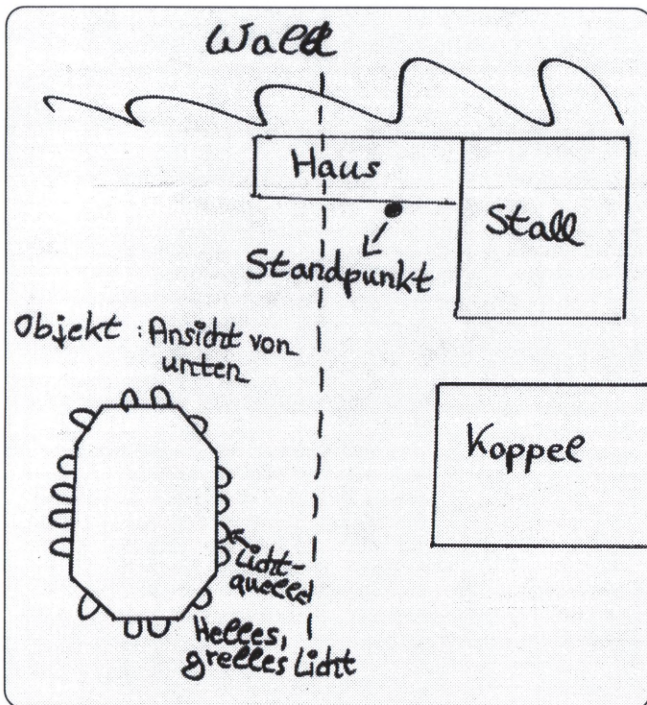 Wald
Haus
Stall
Standpunkt
Objekt : Ansicht von
unten
Koppel
Licht-
quelle
Helles,
grelles Licht